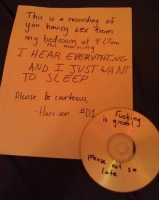 This is a recording of
you having sex from
my bedroom at 4:27am
this morning
I HEAR EVERYTHING
AND I JUST WANT
TO SLEEP
Please be courteous,
- Harrison #D1
Fucking
is great!
please not so
late